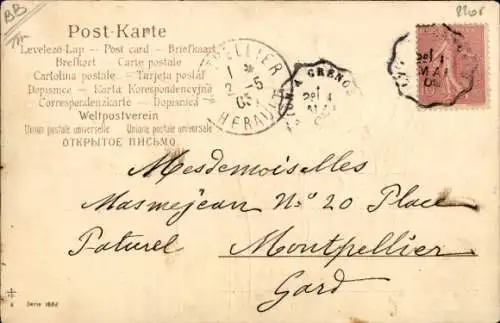 BB
Post-Karte
Levelező-Lap — Post card — Briefkaart
Brefkort — Carte postale
Cartolina postale — Tarjeta postal
Dopisnice — Karta Korespondencyjna
Correspondenzkarte — Dopisnica
Weltpostverein
Union postale universelle Unione postale universale
ОТКРЫТОЕ ПИСЬМО
PELLIER
1
2 - 5
HERAULT
A GRENOB
MAI
Mesdemoiselles
Masmejean No 20 Place
Paturel Montpellier
Gard
Serie 1682